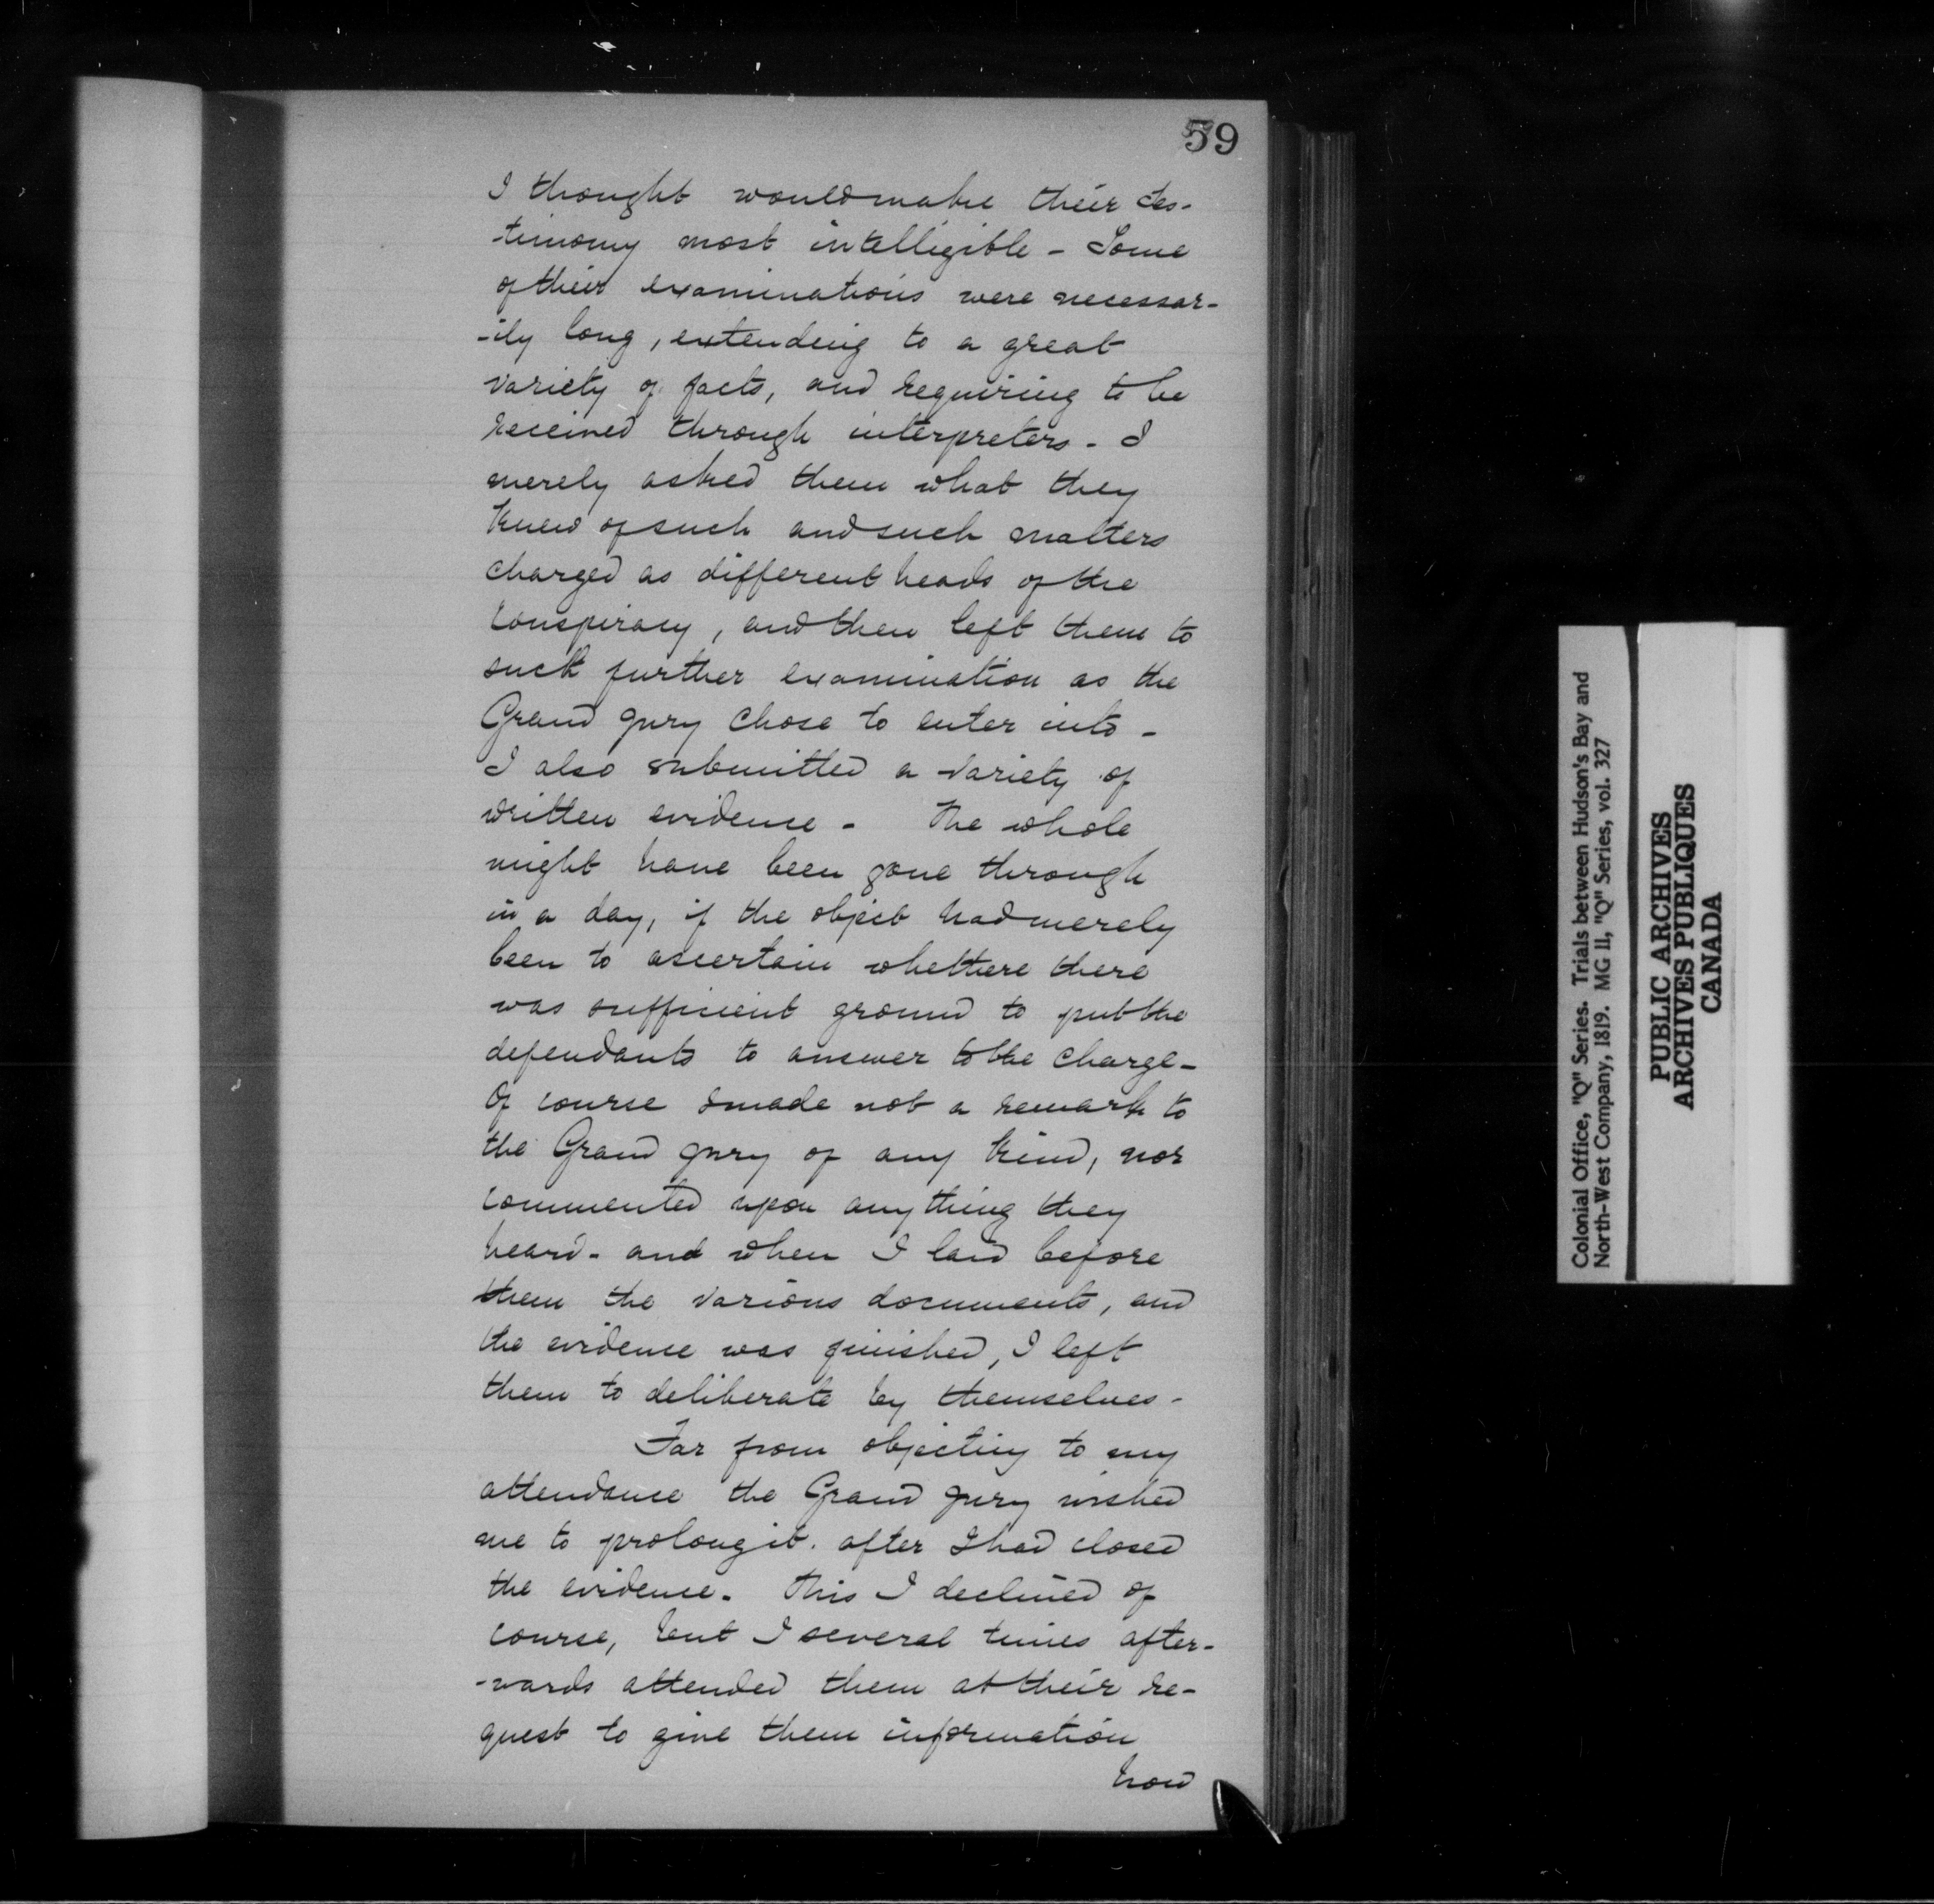 59
I thought would make their tes-
-timony most intelligible - Some
of their examinations were necessar-
-ily long, extending to a great
variety of facts, and requiring to be
received through interpreters - I
merely asked them what they
knew of such and such matters
charged as different heads of the
conspiracy, and then left them to
such further examination as the
Grand Jury chose to enter into -
I also submitted a variety of
written evidence - The whole
might have been gone through
in a day, if the object had merely
been to ascertain whethere there
was sufficient ground to put the
defendants to answer to the charge -
Of course I made not a remark to
the Grand Jury of any kind, nor
commented upon anything they
heard - and when I laid before
them the various documents, and
the evidence was finished, I left
them to deliberate by themselves -
Far from objecting to my
attendance the Grand Jury wished
me to prolong it. after I had closed
the evidence. This I declined of
course, but I several times after-
-wards attended them at their re-
quest to give them information
how
Colonial Office, "Q" Series. Trials between Hudson's Bay and
North-West Company, 1819. MG 11, "Q" Series, vol. 327
PUBLIC ARCHIVES
ARCHIVES PUBLIQUES
CANADA